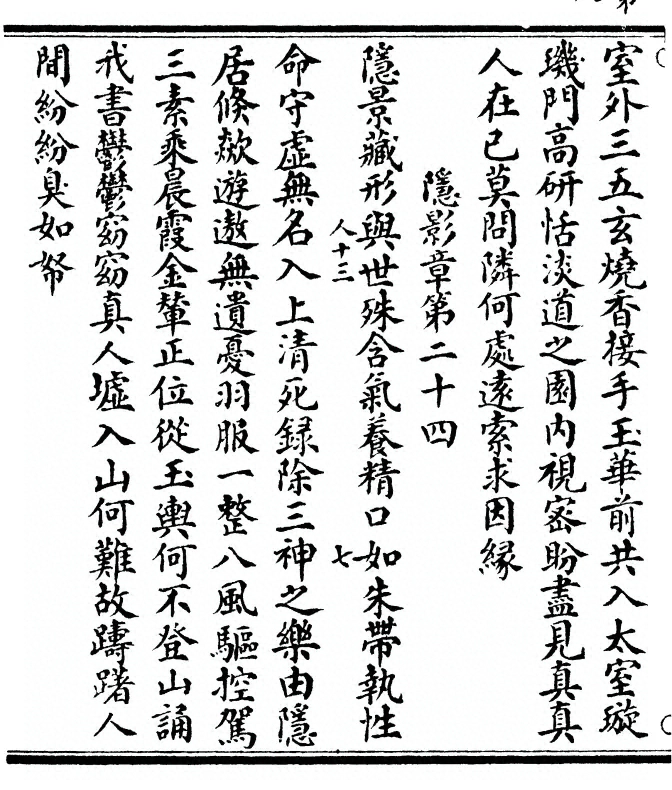 室外三五玄燒香接手玉華前共入太室璇
璣門高研恬淡道之園內視密盼盡見真真
人在已莫問隣何處遠索求因緣
隱影章第二十四
隱景藏形與世殊含氣養精口如朱帶執性
人十三
七
命守虛無名入上清死録除三神之樂由隱
居倐欻遊遨無遺憂羽服一整八風驅控駕
三素乘晨霞金輦正位從玉輿何不登山誦
我書鬱鬱窈窈真人墟入山何難故躊躇人
間紛紛臭如帤